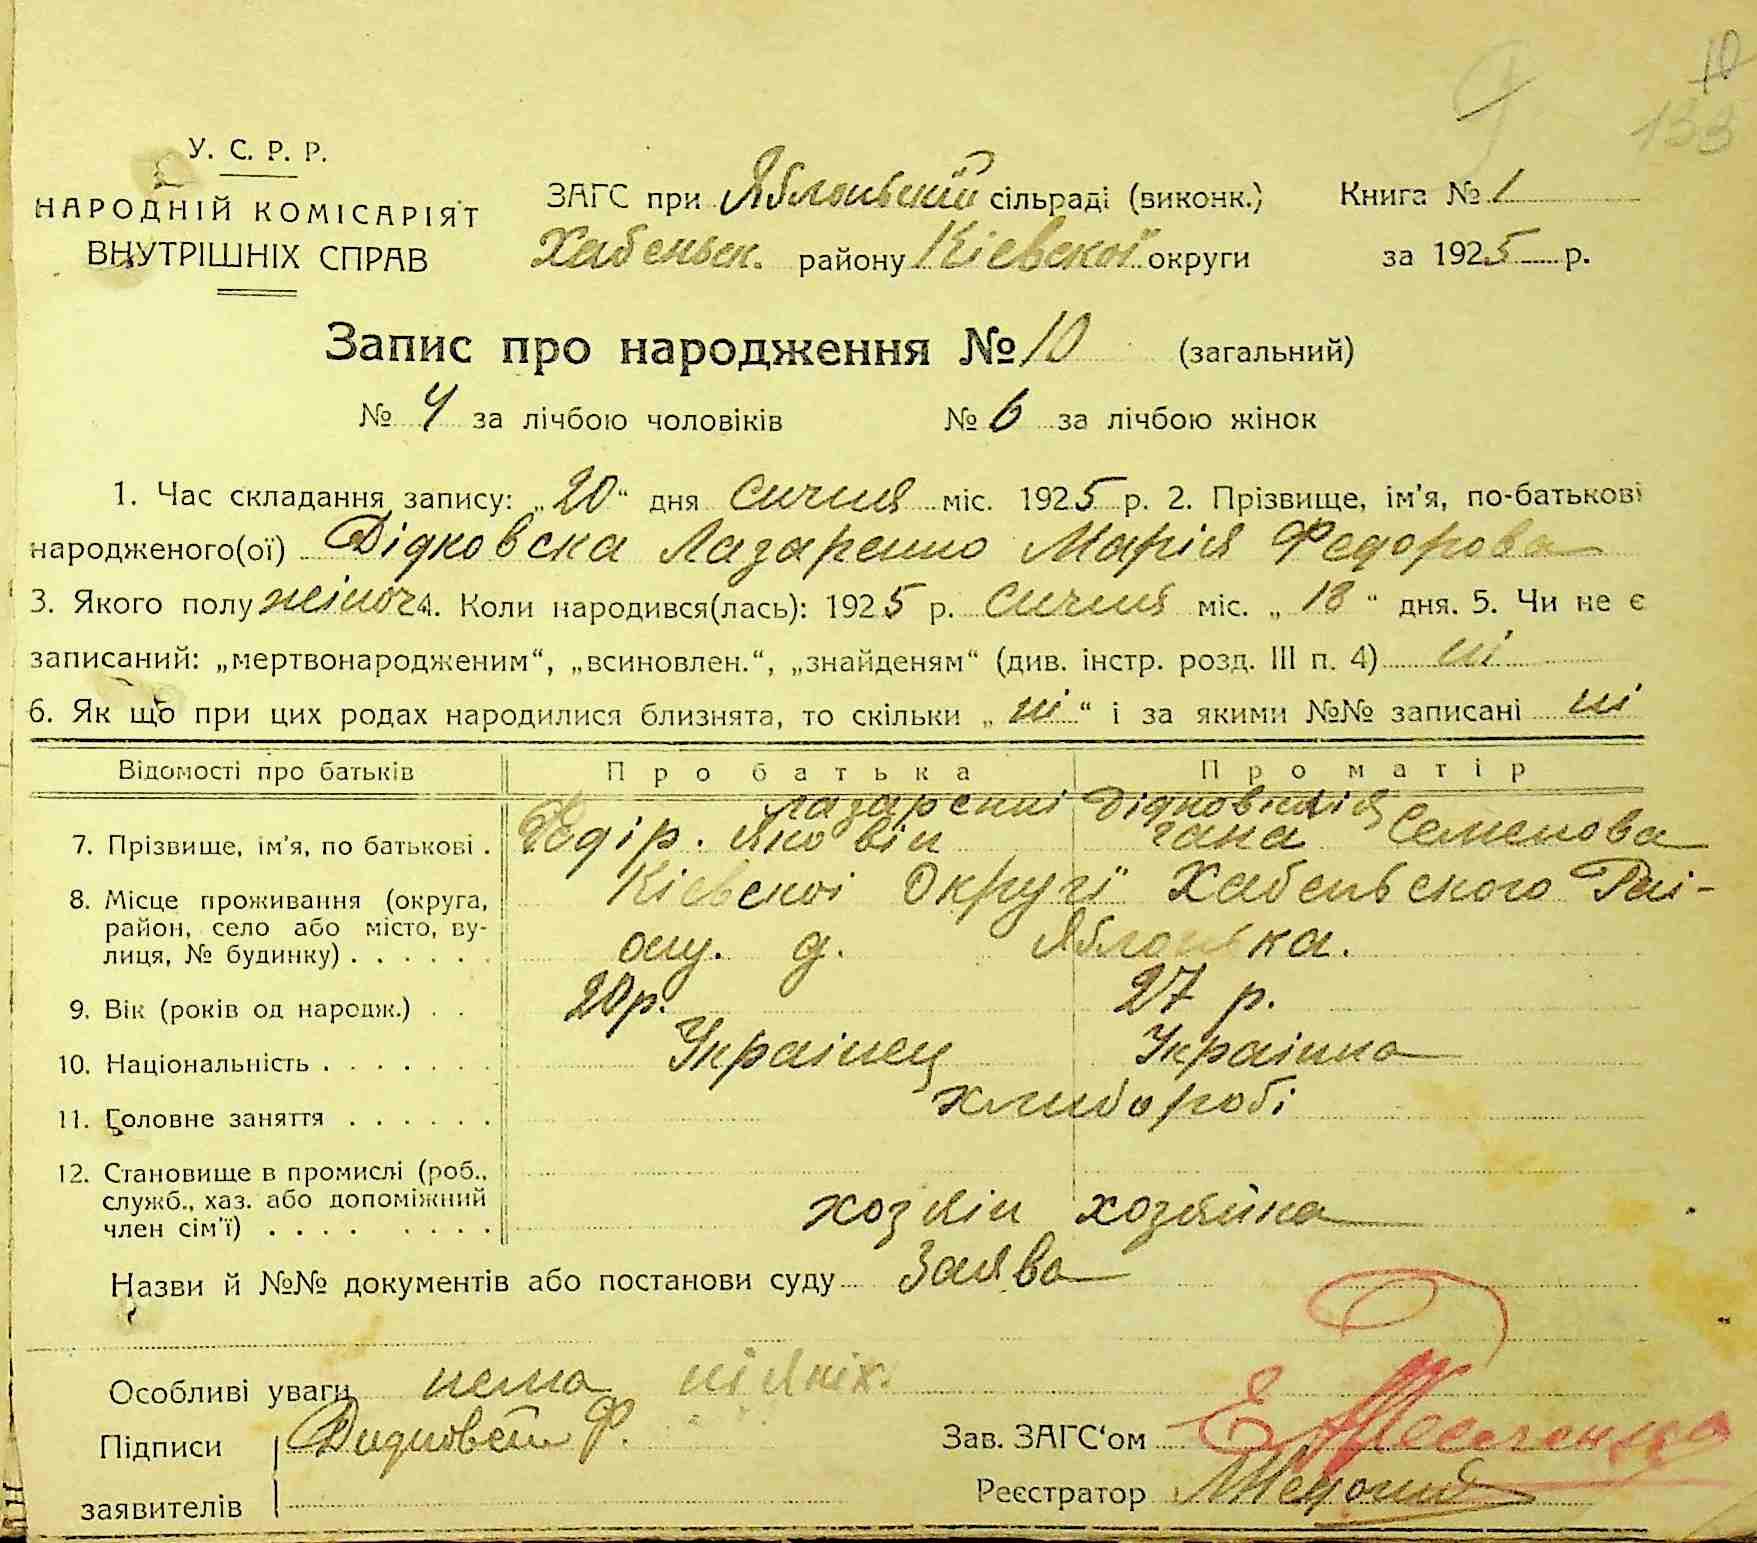 10
133
У. С. Р. Р.
НАРОДНІЙ КОМІСАРІЯТ
ВНУТРІШНІХ СПРАВ
ЗАГС при Яблонькій сільраді (виконк.) Книга № 1
Хабеньск. району Кіевскоі округи за 1925 р.
Запис про народження № 10 (загальний)
№ 4 за лічбою чоловіків № 6 за лічбою жінок
1. Час складання запису: „20“ дня Сичня міс. 1925 р. 2. Прізвище, ім'я, по-батькові
народженого(ої) Дідковска Лазаренко Марія Федорова
3. Якого полу жіноч 4. Коли народився(лась): 1925 р. Сичня міс. „18“ дня. 5. Чи не є
записаний: „мертвонародженим“, „всиновлен.“, „знайденям“ (див. інстр. розд. III п. 4) ні
6. Як що при цих родах народилися близнята, то скільки „ні“ і за якими №№ записані ні
Відомості про батьків Про батька Про матір
7. Прізвище, ім'я, по батькові . Федір. Яковін Гана Семенова
8. Місце проживання (округа, район, село або місто, вулиця, № будинку) . . . . . . Кіевскоі Округі Хабенського Раі-
ону. д. Яблонька.
9. Вік (років од народж.) . . 20 р. 27 р.
10. Національність . . . . . . . Украінец Украінка
11. Головне заняття . . . . . . хлиборобі
12. Становище в промислі (роб., служб., хаз. або допоміжний член сім'ї) . . . . . . . . хозяін хозяйка
Назви й №№ документів або постанови суду Заява
Особливі уваги нема ніякіх.
Підписи Ф.
заявителів
Зав. ЗАГС‘ом
Реєстратор